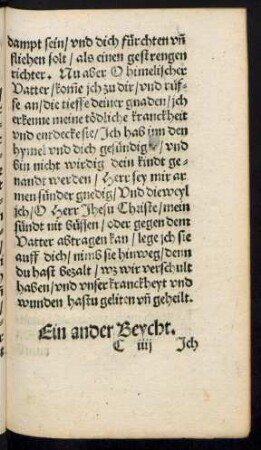 dampt sein/ vnd dich fürchten vñ
fliehen solt/ als einen gestrengen
richter. Nu aber O himelischer
Vatter/ kom̃e jch zu dir/ vnd rüf-
fe an/ die tieffe deiner gnaden/ jch
erkenne meine tödliche kranckheit
vnd entdecke sie/ Jch hab inn den
hymel vnd dich gesündigt/ vnd
bin nicht wirdig dein kindt ge-
nandt werden/ Herr sey mir ar-
men sünder gnedig/ Vnd dieweyl
jch/ O Herr Jhesu Christe/ mein
sündt nit büssen/ oder gegen dem
Vatter abtragen kan/ lege jch sie
auff dich/ nimb sie hinweg/ denn
du hast bezalt/ wz wir verschult
haben/ vnd vnser kranckheyt vnd
wunden hastu geliten vñ geheilt.
Ein ander Beycht.
C iiij Jch